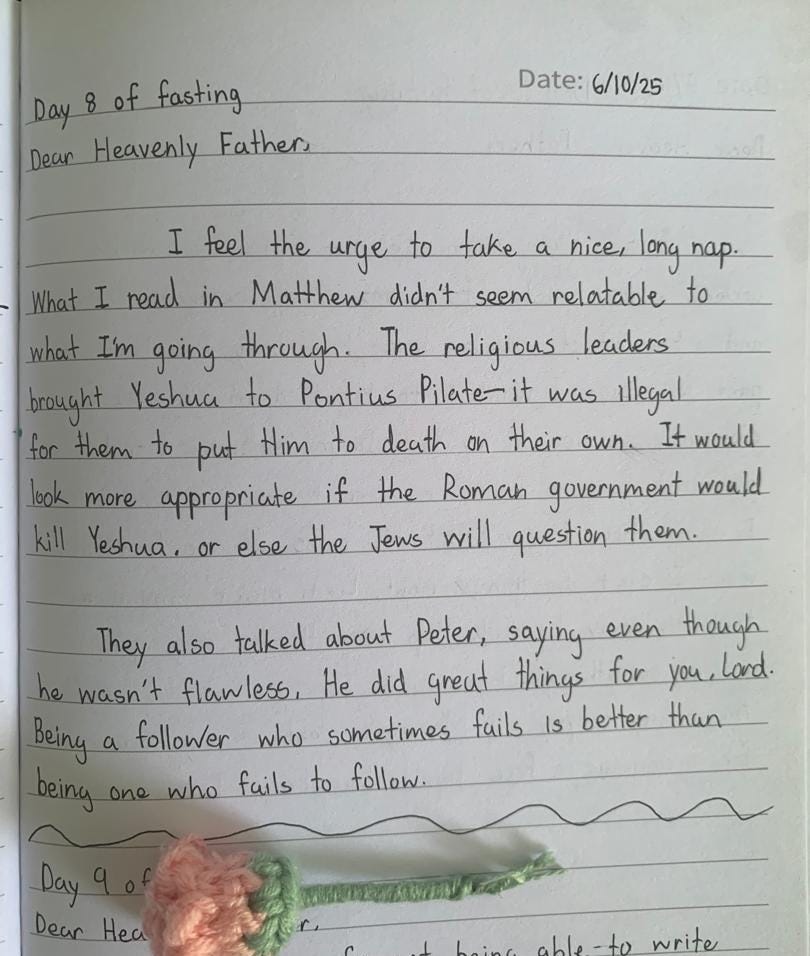 Date: 6/10/25
Day 8 of fasting
Dear Heavenly Father,
I feel the urge to take a nice, long nap.
What I read in Matthew didn't seem relatable to
what I'm going through. The religious leaders
brought Yeshua to Pontius Pilate—it was illegal
for them to put Him to death on their own. It would
look more appropriate if the Roman government would
kill Yeshua, or else the Jews will question them.
They also talked about Peter, saying even though
he wasn't flawless, He did great things for you, Lord.
Being a follower who sometimes fails is better than
being one who fails to follow.
Day 9 of
Dear Hea r,
being able to write